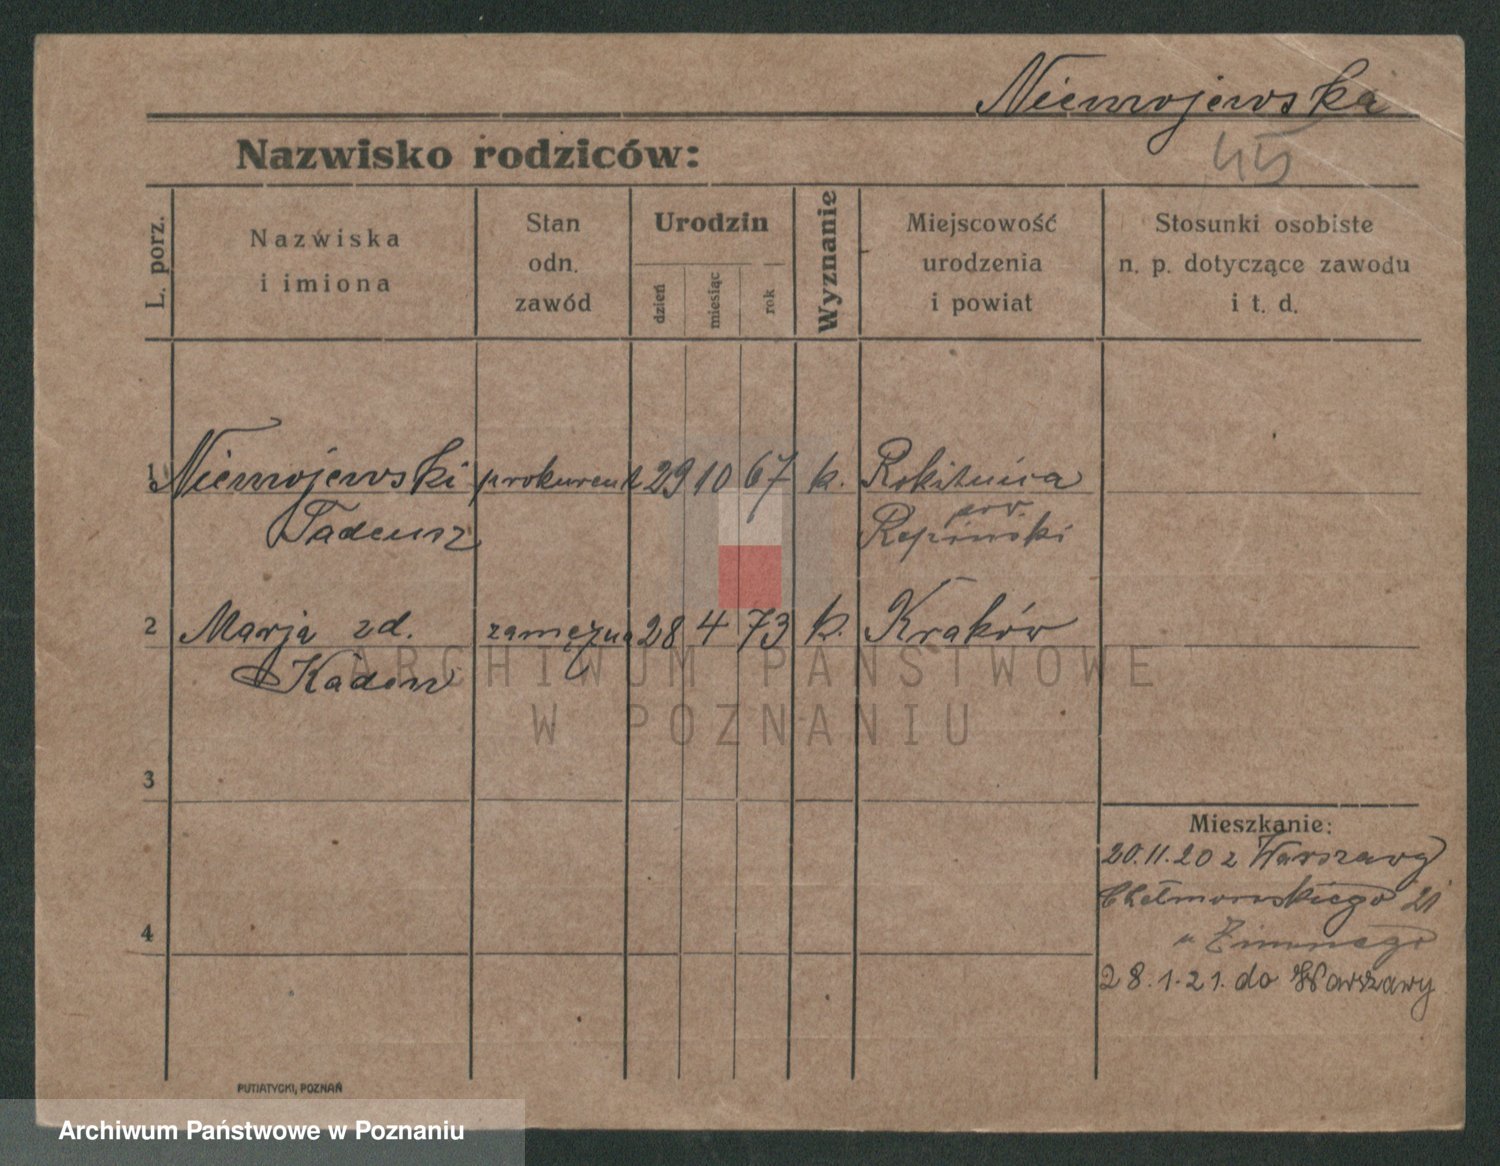 Niemojewska
45
Nazwisko rodziców:
L. porz.
Nazwiska
i imiona
Stan
odn.
zawód
Urodzin
dzień
miesiąc
rok
Wyznanie
Miejscowość
urodzenia
i powiat
Stosunki osobiste
n. p. dotyczące zawodu
i t. d.
1 Niemojewski prokurent 29 10 67 k. Rokitnica
Tadeusz pow. Rypiński
2 Marja zd. zamężna 28 4 73 k. Kraków
Kaden
ARCHIWUM PAŃSTWOWE
W POZNANIU
3
4
Mieszkanie:
20.11.20 z Warszawy
Chełmońskiego 21
u Zimnego
28.1.21. do Warszawy
PUTIATYCKI, POZNAŃ
Archiwum Państwowe w Poznaniu